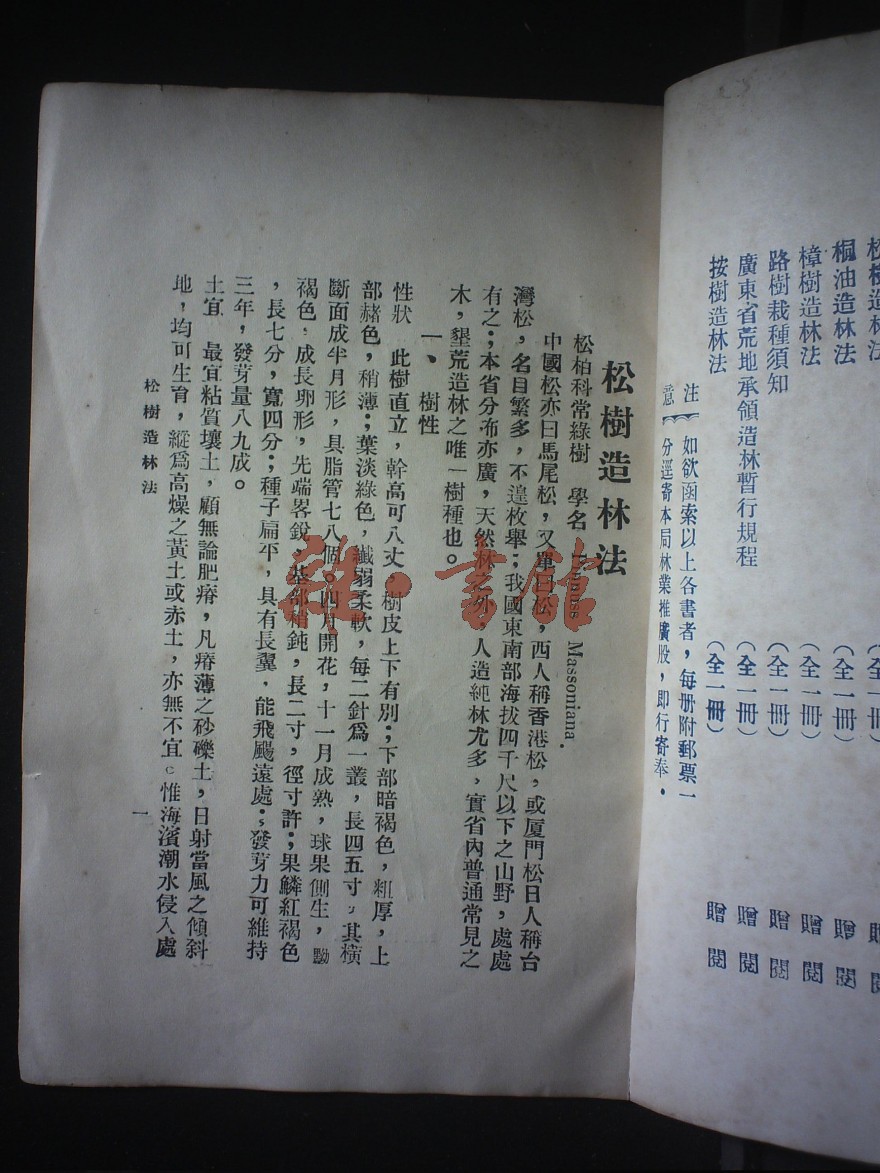 松樹造林法
贈閱
桐油造林法
(全一冊)
贈閱
樟樹造林法
(全一冊)
贈閱
路樹栽種須知
(全一冊)
贈閱
廣東省荒地承領造林暫行規程
(全一冊)
贈閱
按樹造林法
(全一冊)
贈閱
注意
如欲函索以上各書者，每册附郵票一
分逕寄本局林業推廣股，即行寄奉．
松樹造林法
松柏科常綠樹　學名 Massoniana.
中國松亦曰馬尾松，又單曰松，西人稱香港松，或厦門松日人稱台
灣松，名目繁多，不遑枚舉；我國東南部海拔四千尺以下之山野，處處
有之；本省分布亦廣，天然林之外，人造純林尤多，實省內普通常見之
木，墾荒造林之唯一樹種也。
一、樹性
性狀　此樹直立，幹高可八丈，樹皮上下有別；下部暗褐色，粗厚，上
部赭色，稍薄；葉淡綠色，纖弱柔軟，每二針爲一叢，長四五寸，其橫
斷面成半月形，具脂管七八個。四月開花，十一月成熟，球果側生，黝
褐色，成長卵形，先端畧銳，基部稍鈍，長二寸，徑寸許；果鱗紅褐色
，長七分，寬四分；種子扁平，具有長翼，能飛颺遠處；發芽力可維持
三年，發芽量八九成。
土宜　最宜粘質壤土，顧無論肥瘠，凡瘠薄之砂礫土，日射當風之傾斜
地，均可生育，縱爲高燥之黃土或赤土，亦無不宜。惟海濱潮水侵入處
松樹造林法
一
雜·書館